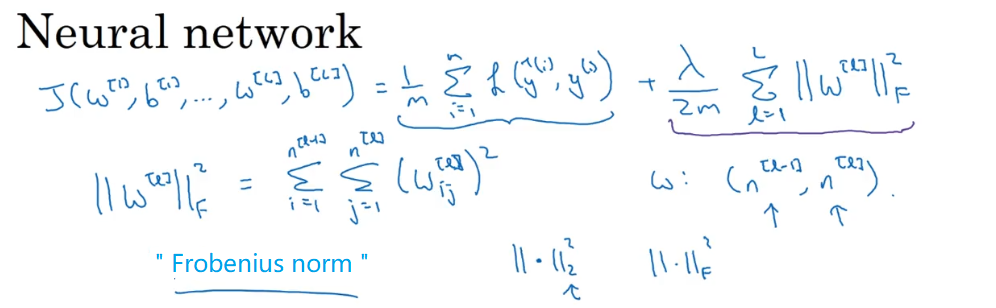 Neural network
J(w^[1], b^[1], ..., w^[L], b^[L]) = 1/m Σ_{i=1}^{n} L(ŷ^(i), y^(i)) + λ/2m Σ_{l=1}^{L} ||w^[l]||_F^2
||w^[l]||_F^2 = Σ_{i=1}^{n^[l-1]} Σ_{j=1}^{n^[l]} (w_ij^[l])^2 w: (n^[l-1], n^[l]).
" Frobenius norm " ||·||_2^2 ||·||_F^2